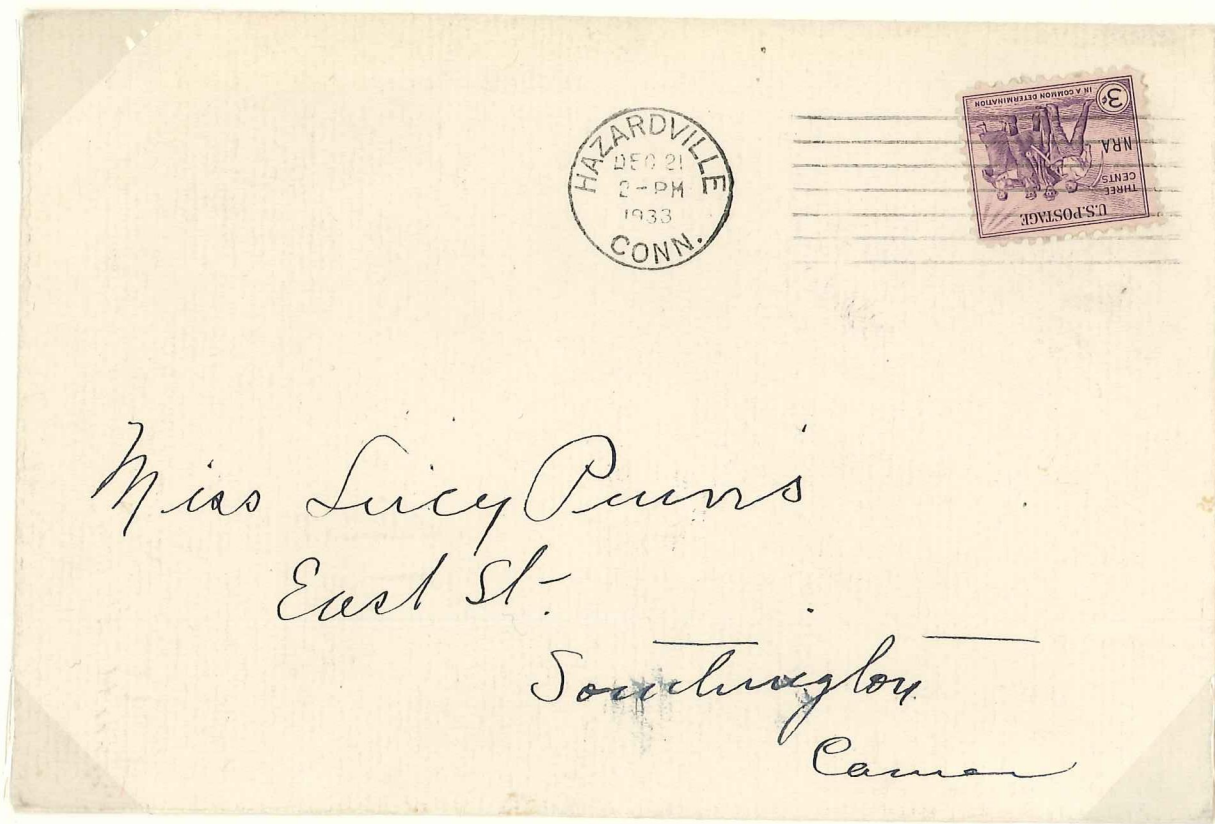 HAZARDVILLE
DEC 21
2-PM
1933
CONN.
U.S. POSTAGE
THREE CENTS
NRA
3¢
IN A COMMON DETERMINATION
Miss Lucy Purvis
East St.
Southington
Conn